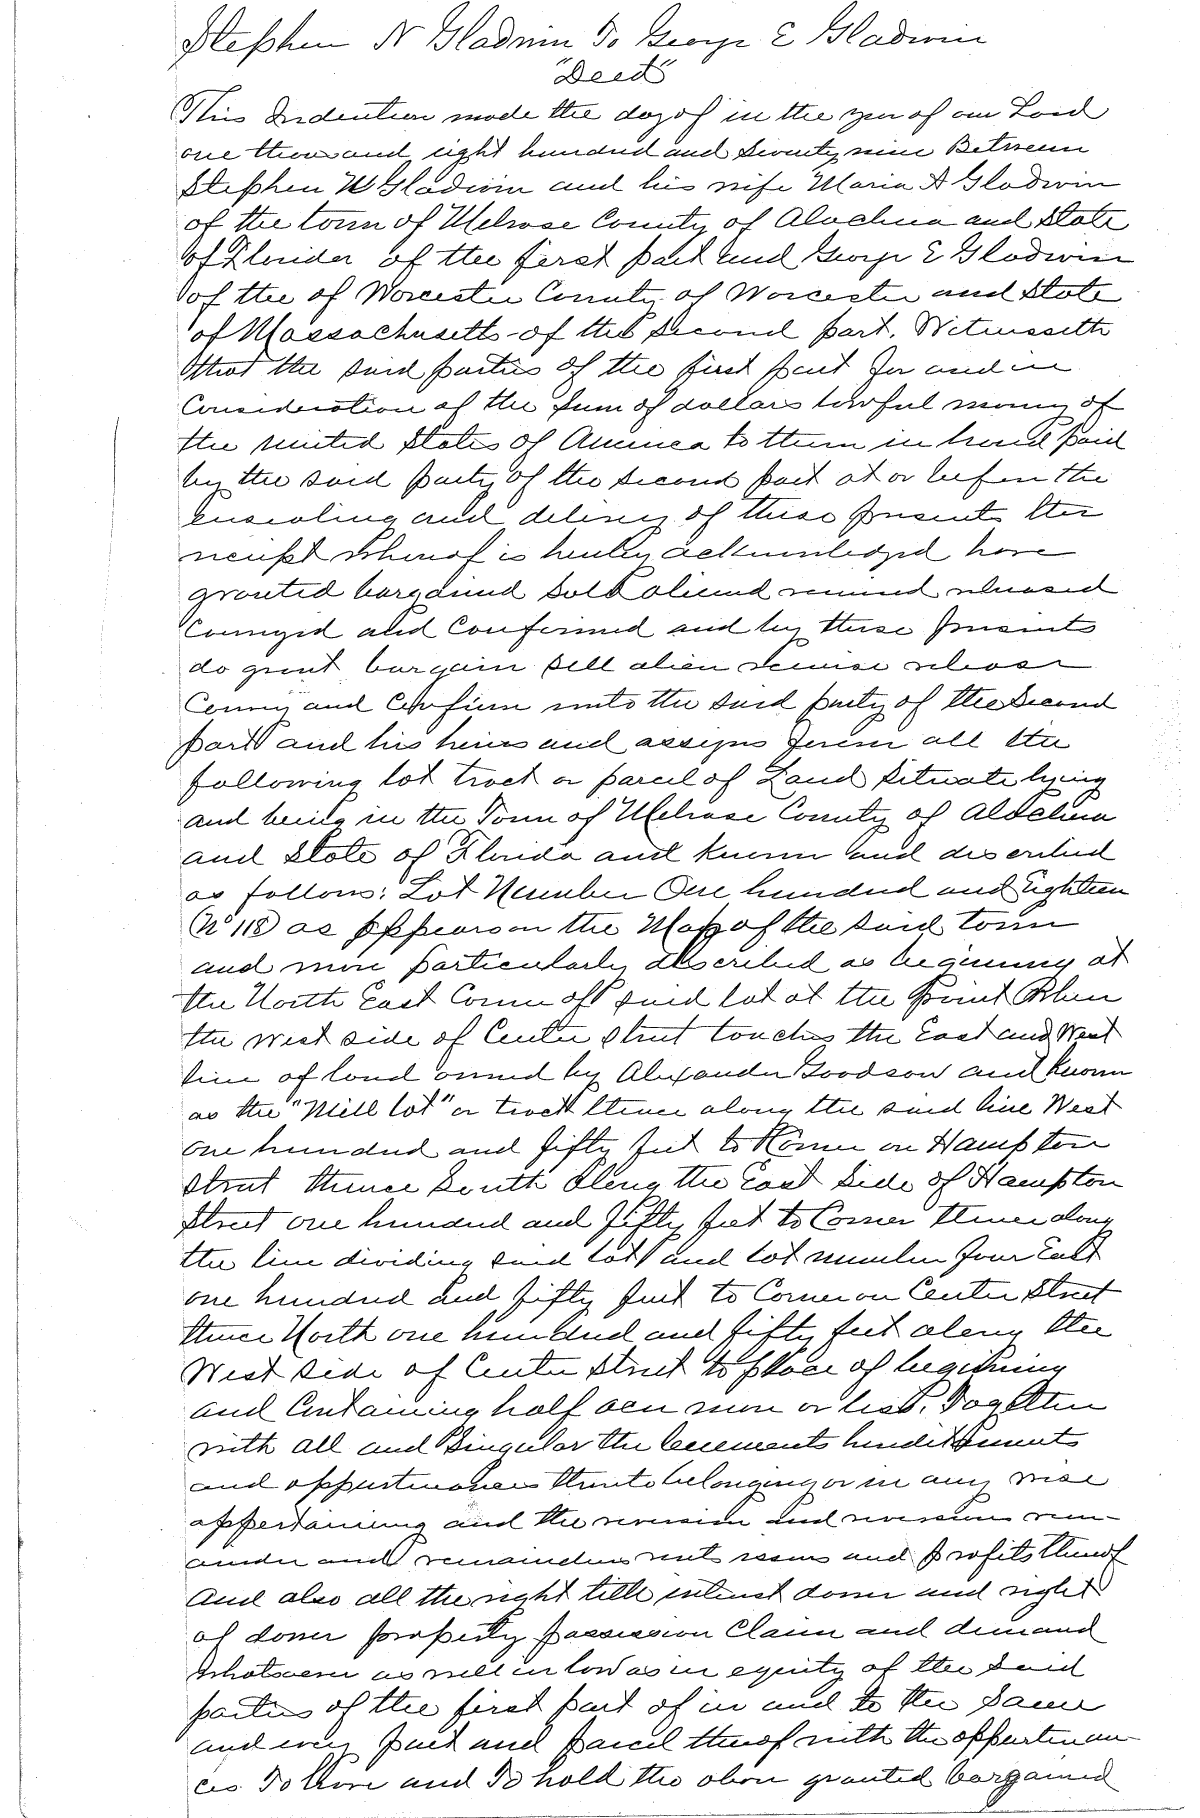 Stephen N Gladwin To George E Gladwin
"Deed"
This Indenture made the day of in the year of our Lord
one thousand eight hundred and Seventy nine Between
Stephen W Gladwin and his wife Maria A Gladwin
of the town of Melrose County of Alachua and State
of Florida of the first part and George E Gladwin
of the of Worcester County of Worcester and State
of Massachusetts of the second part. Witnesseth
that the said parties of the first part for and in
Consideration of the sum of dollars lawful money of
the united States of America to them in hand paid
by the said party of the second part at or before the
ensealing and delivery of these presents the
receipt whereof is hereby acknowledged have
granted bargained sold aliened remised released
Conveyed and Confirmed and by these presents
do grant bargain sell alien remise release
Convey and Confirm unto the said party of the Second
part and his heirs and assigns forever all the
following lot tract or parcel of Land Situate lying
and being in the Town of Melrose County of Alachua
and State of Florida and known and described
as follows: Lot Number One hundred and Eighteen
(No 118) as appears on the Map of the said town
and more particularly described as beginning at
the North East Corner of said lot at the Point Where
the west side of Center Street touches the East and West
line of land owned by Alexander Goodson and known
as the "Mill lot" or tract thence along the said line West
one hundred and fifty feet to Korner on Hampton
Street thence South along the East Side of Hampton
Street one hundred and fifty feet to Corner thence along
the line dividing said lot and lot number four East
one hundred and fifty feet to Corner on Center Street
thence North one hundred and fifty feet along the
West side of Center Street to place of beginning
and Containing half acre more or less. Together
with all and Singular the tenements hereditaments
and appurtenances thereto belonging or in any wise
appertaining and the reversion and reversions rem-
ainder and remainders rents issues and profits thereof
And also all the right title interest dower and right
of dower property possession Claim and demand
whatsoever as well in law as in equity of the said
parties of the first part of in and to the same
and every part and parcel thereof with the appurtenan-
ces To have and To hold the above granted bargained